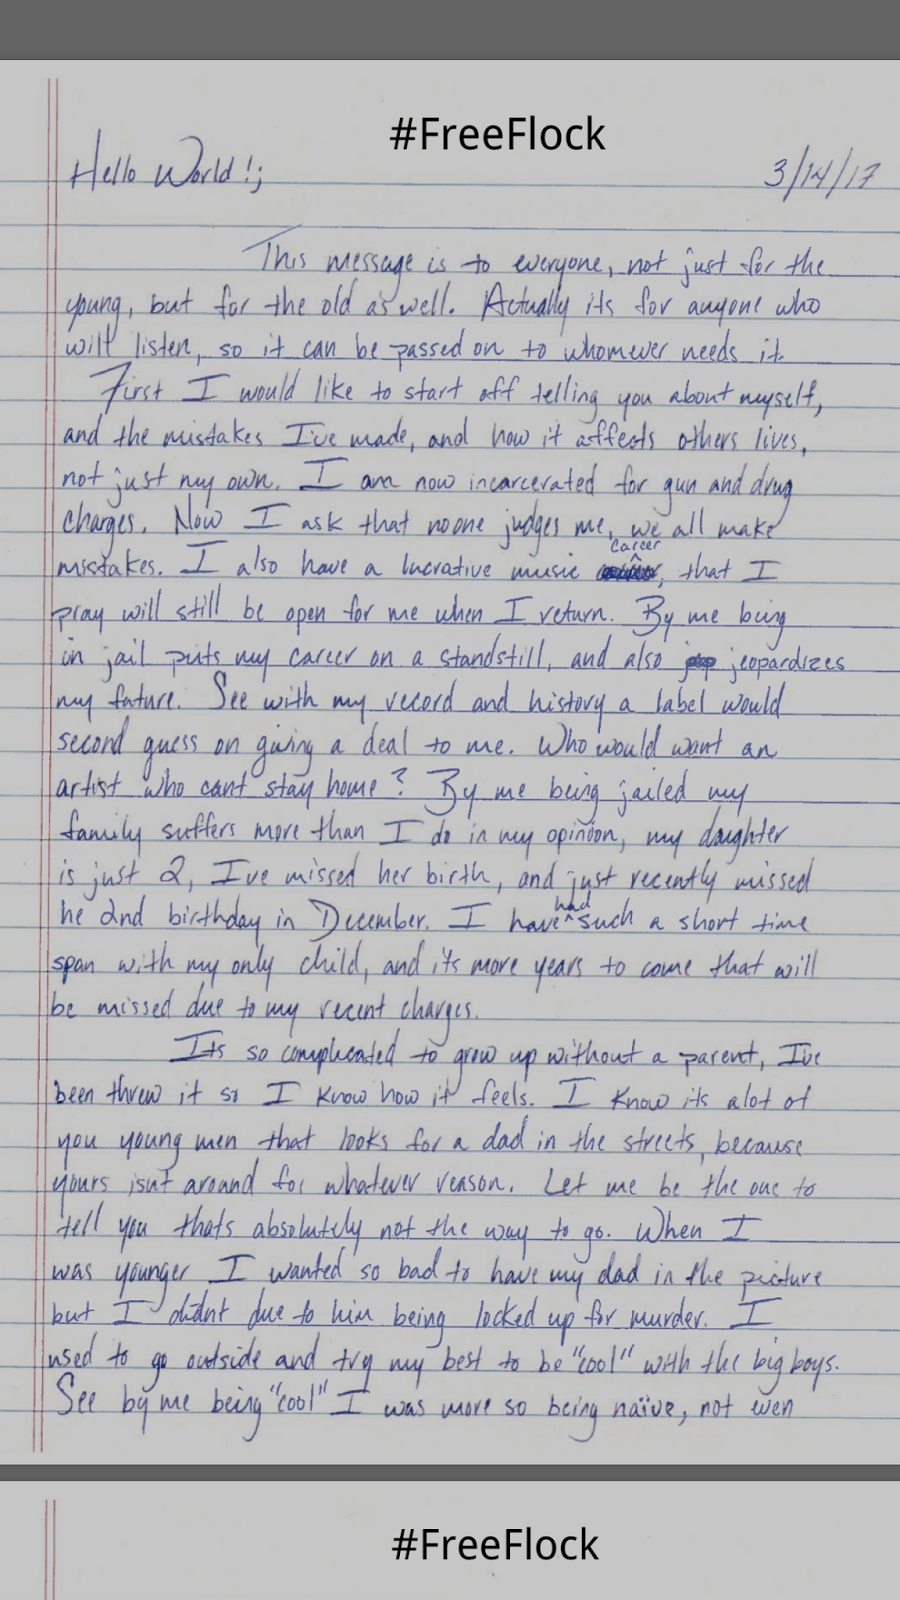 #FreeFlock
Hello World!; 3/14/17
This message is to everyone, not just for the
young, but for the old as well. Actually its for anyone who
will listen, so it can be passed on to whomever needs it.
First I would like to start off telling you about myself,
and the mistakes I've made, and how it affects others lives,
not just my own. I am now incarcerated for gun and drug
charges. Now I ask that noone judges me, we all make
mistakes. I also have a lucrative music career, that I
pray will still be open for me when I return. By me being
in jail puts my career on a standstill, and also jeopardizes
my future. See with my record and history a label would
second guess on giving a deal to me. Who would want an
artist who cant stay home? By me being jailed my
family suffers more than I do in my opinion, my daughter
is just 2, I've missed her birth, and just recently missed
he 2nd birthday in December. I have had such a short time
span with my only child, and it's more years to come that will
be missed due to my recent charges.
Its so complicated to grow up without a parent, I've
been threw it so I know how it feels. I know its alot of
you young men that looks for a dad in the streets, because
yours isnt around for whatever reason. Let me be the one to
tell you thats absolutely not the way to go. When I
was younger I wanted so bad to have my dad in the picture
but I didnt due to him being locked up for murder. I
used to go outside and try my best to be "cool" with the big boys.
See by me being "cool" I was more so being naïve, not even
#FreeFlock